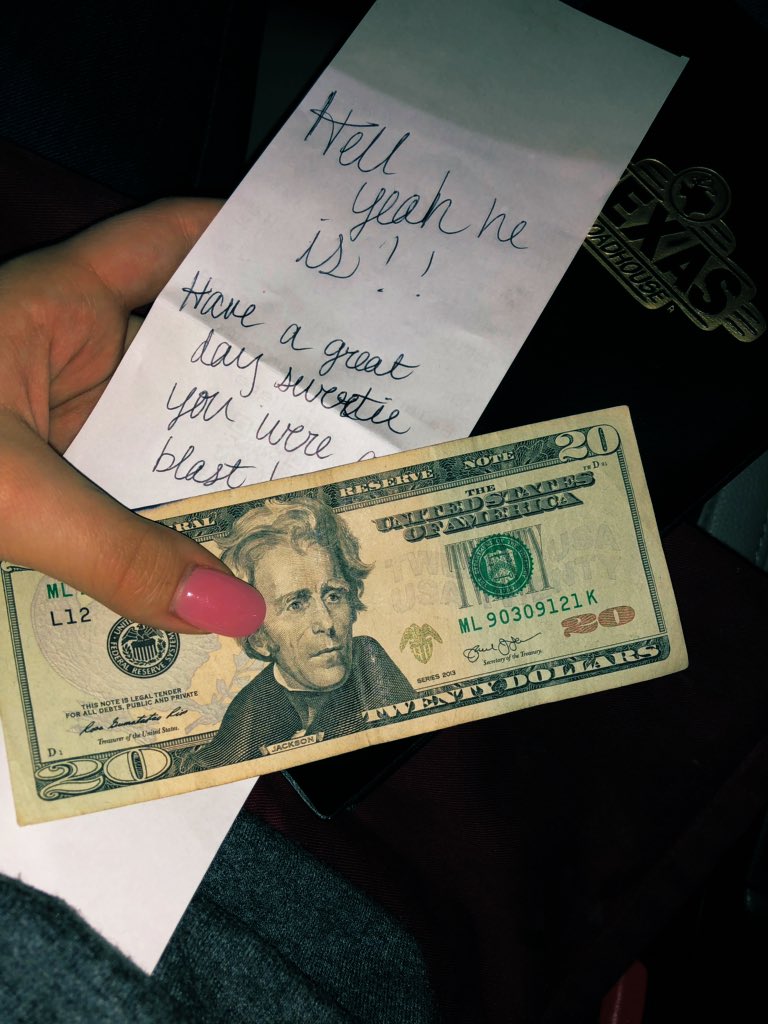 Hell
yeah he
is!!
Have a great
day sweetie
you were a
blast!
TEXAS
ROADHOUSE
RESERVE NOTE
20
THE
UNITED STATES
OF AMERICA
TWENTY USA
ML 90309121 K
L12
20
Secretary of the Treasury.
SERIES 2013
THIS NOTE IS LEGAL TENDER
FOR ALL DEBTS, PUBLIC AND PRIVATE
Treasurer of the United States.
TWENTY DOLLARS
D1
JACKSON
20